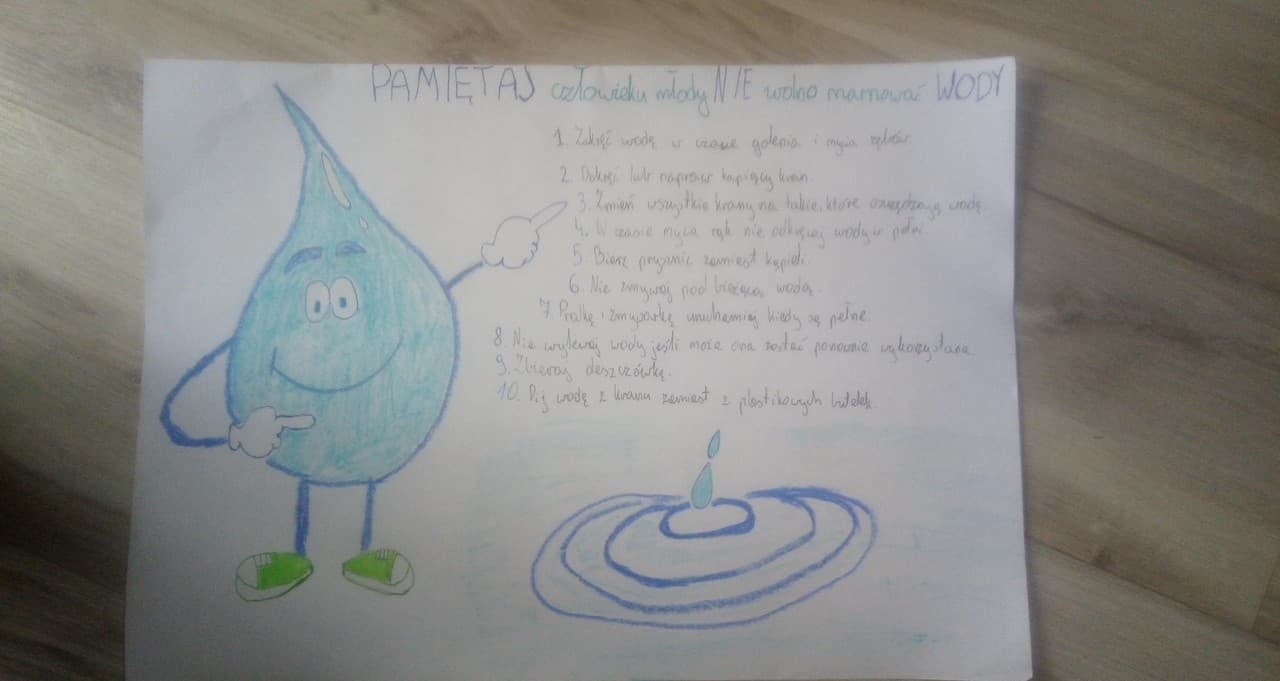 PAMIĘTAJ człowieku młody NIE wolno marnować WODY
1. Zakręć wodę w czasie golenia i mycia zębów.
2. Dokręć lub napraw kapiący kran.
3. Zmień wszystkie krany na takie, które oszczędzają wodę.
4. W czasie mycia rąk nie odkręcaj wody w pełni.
5. Bierz prysznic zamiast kąpieli.
6. Nie zmywaj pod bieżącą wodą.
7. Pralkę i zmywarkę uruchamiaj kiedy są pełne
8. Nie wylewaj wody jeśli może ona zostać ponownie wykorzystana
9. Zbieraj deszczówkę.
10. Pij wodę z kranu zamiast z plastikowych butelek.